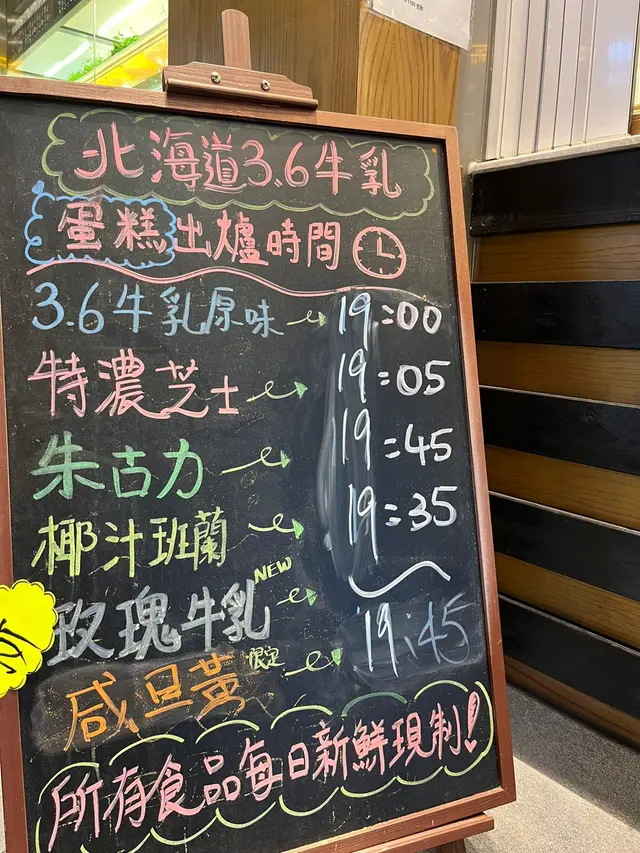 北海道3.6牛乳
蛋糕出爐時間
3.6牛乳原味 19:00
特濃芝士 19:05
朱古力 19:45
椰汁班蘭 19:35
玫瑰牛乳 NEW
咸旦黃 限定 19:45
所有食品每日新鮮現制!